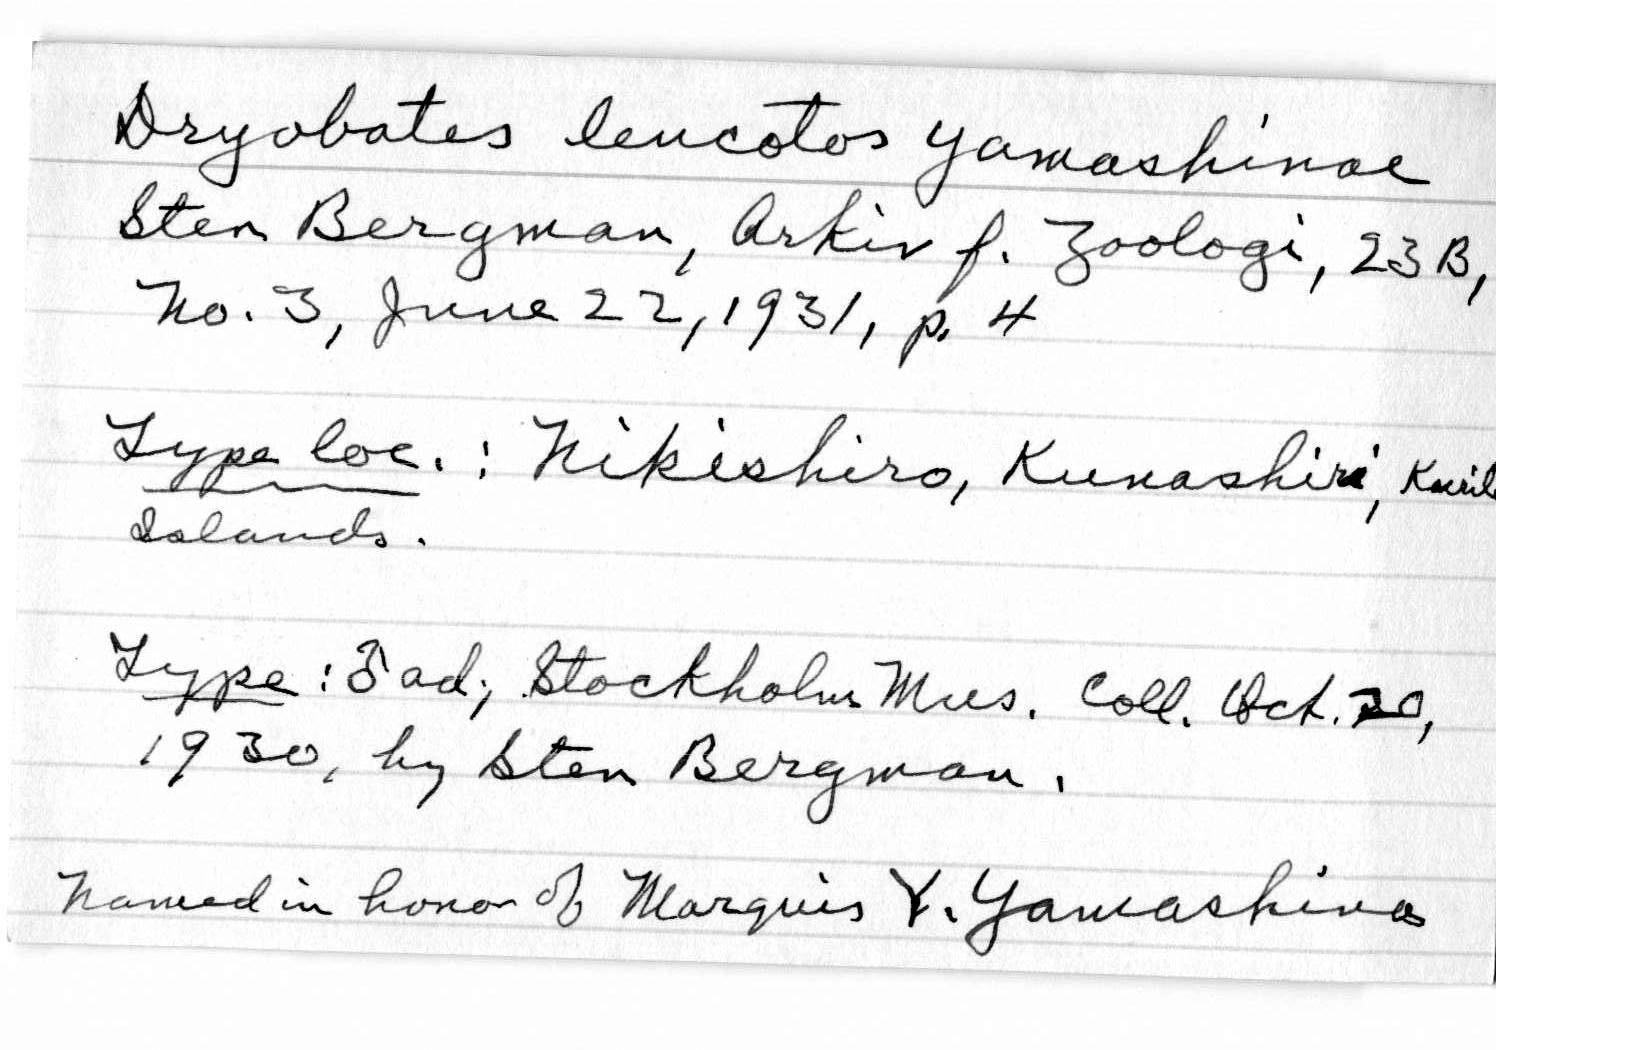 Dryobates leucotos yamashinae
Sten Bergman, Arkiv f. Zoologi, 23 B,
No. 3, June 22, 1931, p. 4
Type loc. : Nikishiro, Kunashiri, Kuril
Islands.
Type : ♂ ad; Stockholm Mus. Coll. Oct. 20,
1930, by Sten Bergman.
Named in honor of Marquis Y. Yamashina